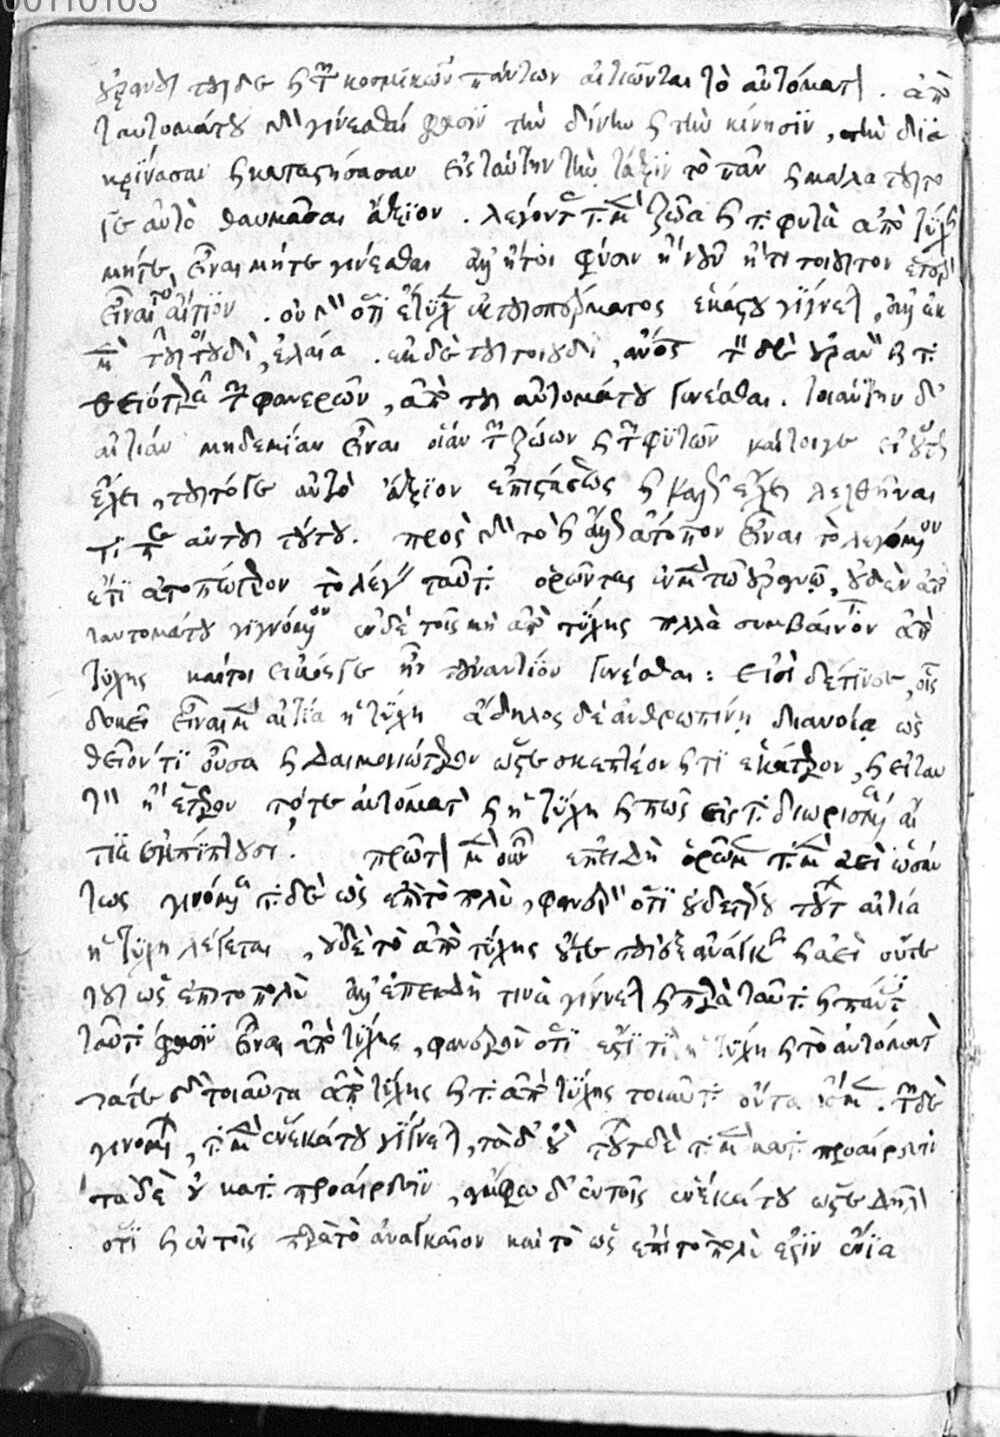 οὐρανοῦ τοῦδε καὶ τῶν κοσμικῶν πάντων αἰτιῶνται τὸ αὐτόματον. ἀπὸ
ταυτομάτου γὰρ γίνεσθαί φασϊν τὴν δίνην καὶ τὴν κίνησϊν, τὴν δϊα
κρϊνασαν καὶ καταστήσασαν εἰς ταύτην τὴν τάξϊν τὸ πᾶν καὶ μάλα τοῦτο
γε αὐτὸ θαυμᾶσαι ἄξϊον. λέγοντες τὰ μὲν ζῶα καὶ τὰ φυτὰ ἀπὸ τύχης
μήτε εἶναι μήτε γίνεσθαι ἀλλ' ἤτοι φύσιν ἢ νοῦν ἤ τι τοιοῦτον ἕτερον
εἶναι τὸ αἴτϊον. οὐ γὰρ ὅτϊ ἔτυχεν ἐκ τοῦ σπέρματος ἑκάστου γίγνεται, ἀλλ' ἐκ
μὲν τοῦ τουδὶ, ἐλαία. ἐκ δὲ τοῦ τοιουδὶ, ἄνθρωπος τὸν δὲ οὐρανὸν καὶ τὰ
θειότατα τῶν φανερῶν, ἀπὸ τοῦ αὐτομάτου γενέσθαι. τοιαύτην δ'
αἰτίαν μηδεμΐαν εἶναι οἵαν τῶν ζώων καὶ τῶν φϋτῶν καίτοιγε εἰ οὕτως
ἔχει, τοῦτό γε αὐτὸ ἄξϊον ἐπιστάσεως καὶ καλῶς ἔχει λεχθῆναι
τὶ περὶ αὐτοῦ τούτου. πρὸς γὰρ τὸ καὶ ἄλλως ἄτοπον εἶναι τὸ λεγόμενον
ἔτϊ ἀτοπώτερον τὸ λέγειν ταῦτα ὁρῶντας ἐν μὲν τῷ οὐρανῷ, οὐδὲν ἀπὸ
ταυτομάτου γιγνόμενον ἐν δὲ τοῖς μὴ ἀπὸ τύχης πολλὰ συμβαίνοντα ἀπὸ
τύχης καίτοι εἰκόςγε ἦν τοὐναντίον γενέσθαι: εἰσὶ δέ τϊνες, οἷς
δοκεῖ εἶναι μὲν αἰτία ἡ τύχη ἄδηλος δὲ ἀνθρωπίνῃ διανοίᾳ ὡς
θεῖόν τι οὖσα καὶ δαιμονιώτερον ὥστε σκεπτέον καὶ τί ἑκάτερον, καὶ εἰ ταυ
τὸν ἢ ἕτερον τό τε αὐτόματον καὶ ἡ τύχη καὶ πῶς εἰς τὰ διωρισμένα αἴ
τϊα ἐμπίπτουσι. πρῶτον μὲν οὖν ἐπειδὴ ὁρῶμεν τὰ μὲν ἀεὶ ὡσαύ
τως γινόμενα τὰ δὲ ὡς ἐπὶ τὸ πολὺ, φανερὸν ὅτι οὐδετέρου τούτων αἰτία
ἡ τύχη λέγεται, οὐδὲ τὸ ἀπὸ τύχης οὔτε τοῦ ἐξ ἀνάγκης καὶ ἀεὶ οὔτε
τοῦ ὡς ἐπὶ τὸ πολὺ ἀλλ' ἐπειδὴ τινὰ γίγνεται καὶ παρὰ ταῦτα καὶ πάντες
ταῦτα φασϊν εἶναι ἀπὸ τύχης, φανερὸν ὅτϊ ἔστϊ τὶ ἡ τύχη καὶ τὸ αὐτόματον
τάτε γὰρ τοιαῦτα ἀπὸ τύχης καὶ τὰ ἀπὸ τύχης τοιαῦτα ὄντα ἴσμεν. τῶν δὲ
γινομένων, τὰ μὲν ἕνεκά του γίγνεται, τὰ δ' οὔ τούτων δὲ τὰ μὲν κατὰ προαίρεσιν
τὰ δὲ οὐ κατὰ προαίρεσϊν, ἄμφω δ' ἐν τοῖς ἕνεκά του ὥστε δῆλον
ὅτϊ καὶ ἐν τοῖς παρὰ τὸ ἀναγκαῖον καὶ τὸ ὡς ἐπὶ τὸ πολὺ ἔστϊν ἔνϊα